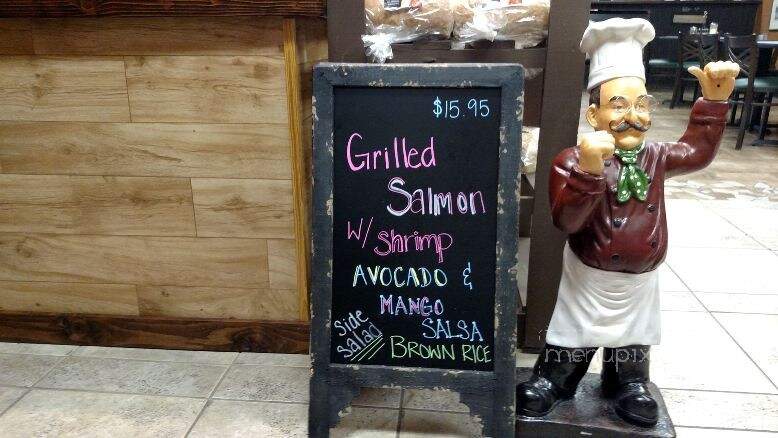 $15.95
Grilled
Salmon
W/ Shrimp
AVOCADO &
MANGO
SALSA
Side
Salad
BROWN RICE
menupix